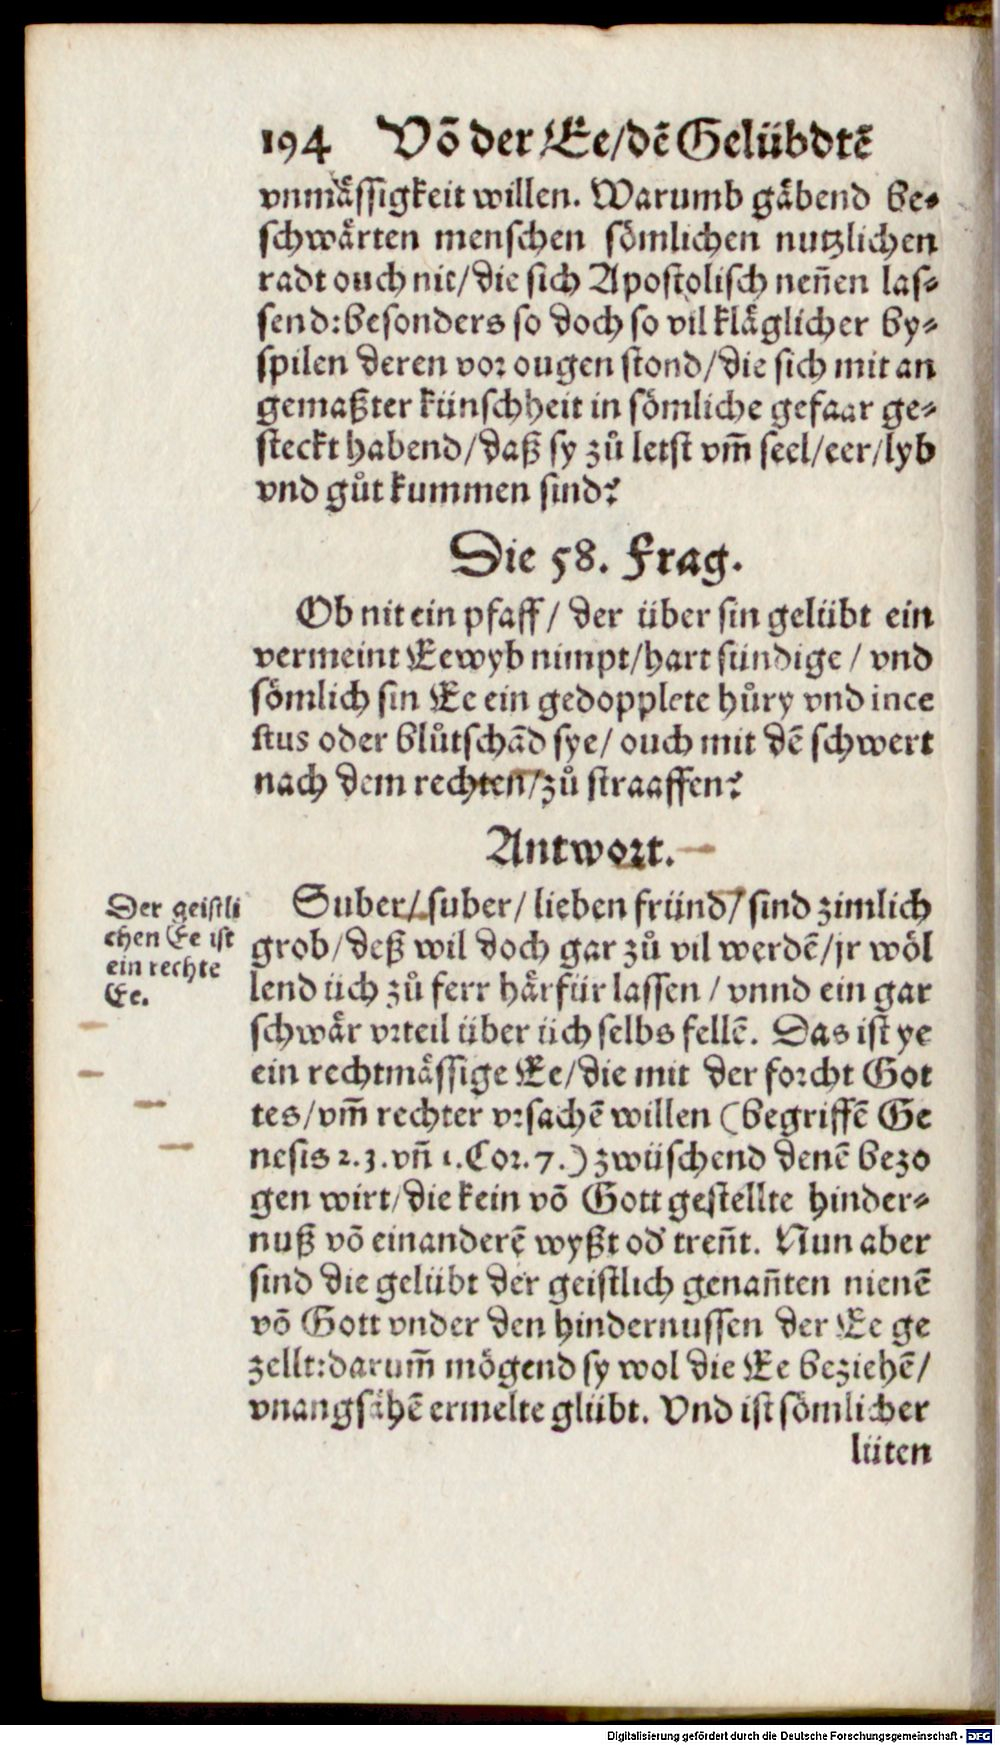 194 Võ der Ee/dẽ Gelübdtẽ
vnmåssigkeit willen. Warumb gåbend be-
schwårten menschen sömlichen nutzlichen
radt ouch nit/die sich Apostolisch neñen las-
send: besonders so doch so vil kläglicher by-
spilen deren vor ougen stond/die sich mit an
gemaßter künschheit in sömliche gefaar ge-
steckt habend/daß sy zů letst vm̃ seel/eer/lyb
vnd gůt kummen sind?
Die 58. Frag.
Ob nit ein pfaff/ der über sin gelübt ein
vermeint Eewyb nimpt/hart sündige/ vnd
sömlich sin Ee ein gedopplete hůry vnd ince
stus oder blůtschãd sye/ ouch mit dẽ schwert
nach dem rechten/zů straaffen?
Antwort.
Suber/suber/ lieben fründ/ sind zimlich
grob/deß wil doch gar zů vil werdẽ/jr wöl
lend üch zů ferr hårfür lassen/ vnnd ein gar
schwår vrteil über üch selbs fellẽ. Das ist ye
ein rechtmåssige Ee/die mit der forcht Got
tes/vm̃ rechter vrsachẽ willen (begriffẽ Ge
nesis 2.3.vñ 1.Cor.7.) zwüschend denẽ bezo
gen wirt/die kein võ Gott gestellte hinder-
nuß võ einanderẽ wyßt od' treñt. Nun aber
sind die gelübt der geistlich genañten nienẽ
võ Gott vnder den hindernussen der Ee ge
zellt: darum̃ mögend sy wol die Ee beziehẽ/
vnangsåhẽ ermelte glübt. Vnd ist sömlicher
lüten
Der geistli
chen Ee ist
ein rechte
Ee.
Digitalisierung gefördert durch die Deutsche Forschungsgemeinschaft - DFG